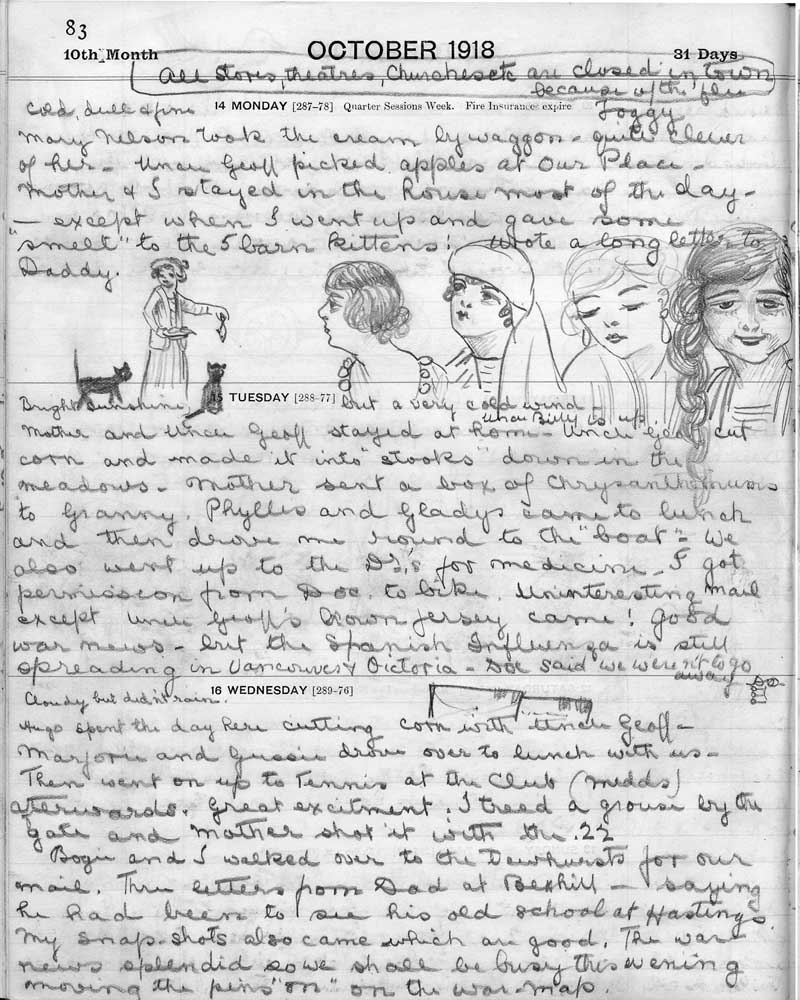 83
10th Month OCTOBER 1918 31 Days
All stores, theatres, Churches etc are closed in town
because of the 'flu
Cold, dull & fine 14 MONDAY [287-78] Quarter Sessions Week. Fire Insurance expire Foggy
Mary Nelson took the cream by waggon - quite clever
of her - Uncle Geoff picked apples at Our Place -
Mother & I stayed in the house most of the day -
- except when I went up and gave some
"smelt" to the 5 barn kittens! Wrote a long letter to
Daddy.
Bright Sunshine 15 TUESDAY [288-77] but a very cold wind -
Uncle Billy is up!
Mother and Uncle Geoff stayed at home - Uncle Geoff cut
corn and made it into "stooks" down in the
meadows - Mother sent a box of Chrysanthemums
to Granny. Phyllis and Gladys came to lunch
and then drove me round to the "boat" - We
also went up to the Dr's for medicine - I got
permission from Doc. to bike. Uninteresting mail
except Uncle Geoff's brown jersey came! Good
war news - but the Spanish Influenza is still
spreading in Vancouver & Victoria - Doc said we weren't to go
away
16 WEDNESDAY [289-76]
Cloudy but didn't rain.
Hugo spent the day here cutting corn with Uncle Geoff -
Marjorie and Gussie drove over to lunch with us -
Then went on up to Tennis at the Club (Midds)
afterwards. Great excitment. I treed a grouse by the
gate and Mother shot it with the .22
Bogie and I walked over to the Dewhursts for our
mail. Three letters from Dad at Bexhill - saying
he had been to see his old school at Hastings.
My snap-shots also came which are good. The war
news splendid so we shall be busy this evening
moving the pins "on" on the war-map.